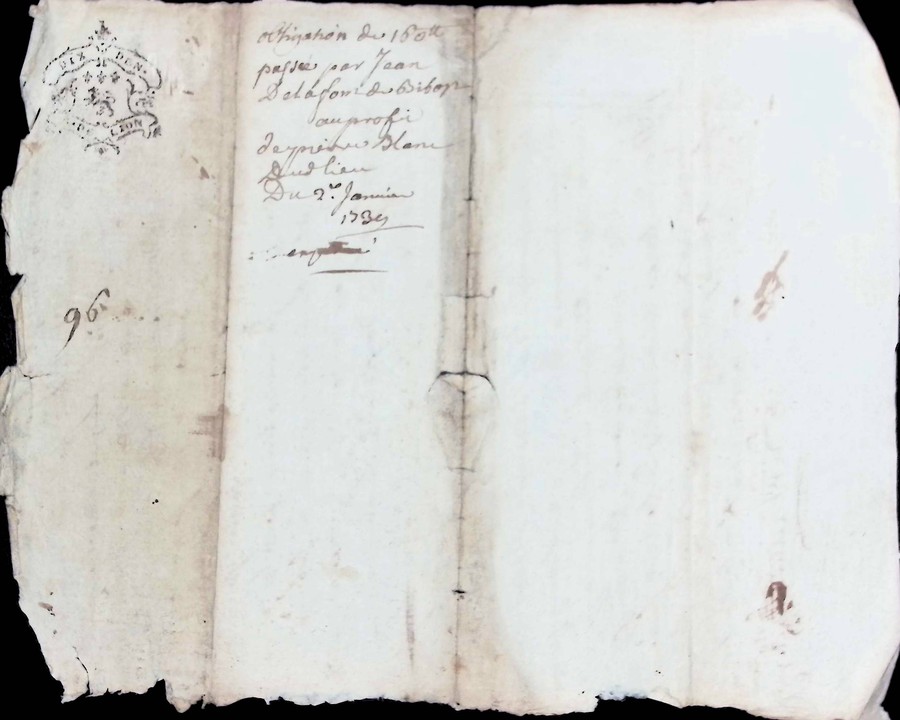 DIX DEN.
LION
obligation de 160tt
passée par Jean
Delafont de
au profit
de pierre Blanc
Dud lieu
Du 2e. Janvier
1739
96